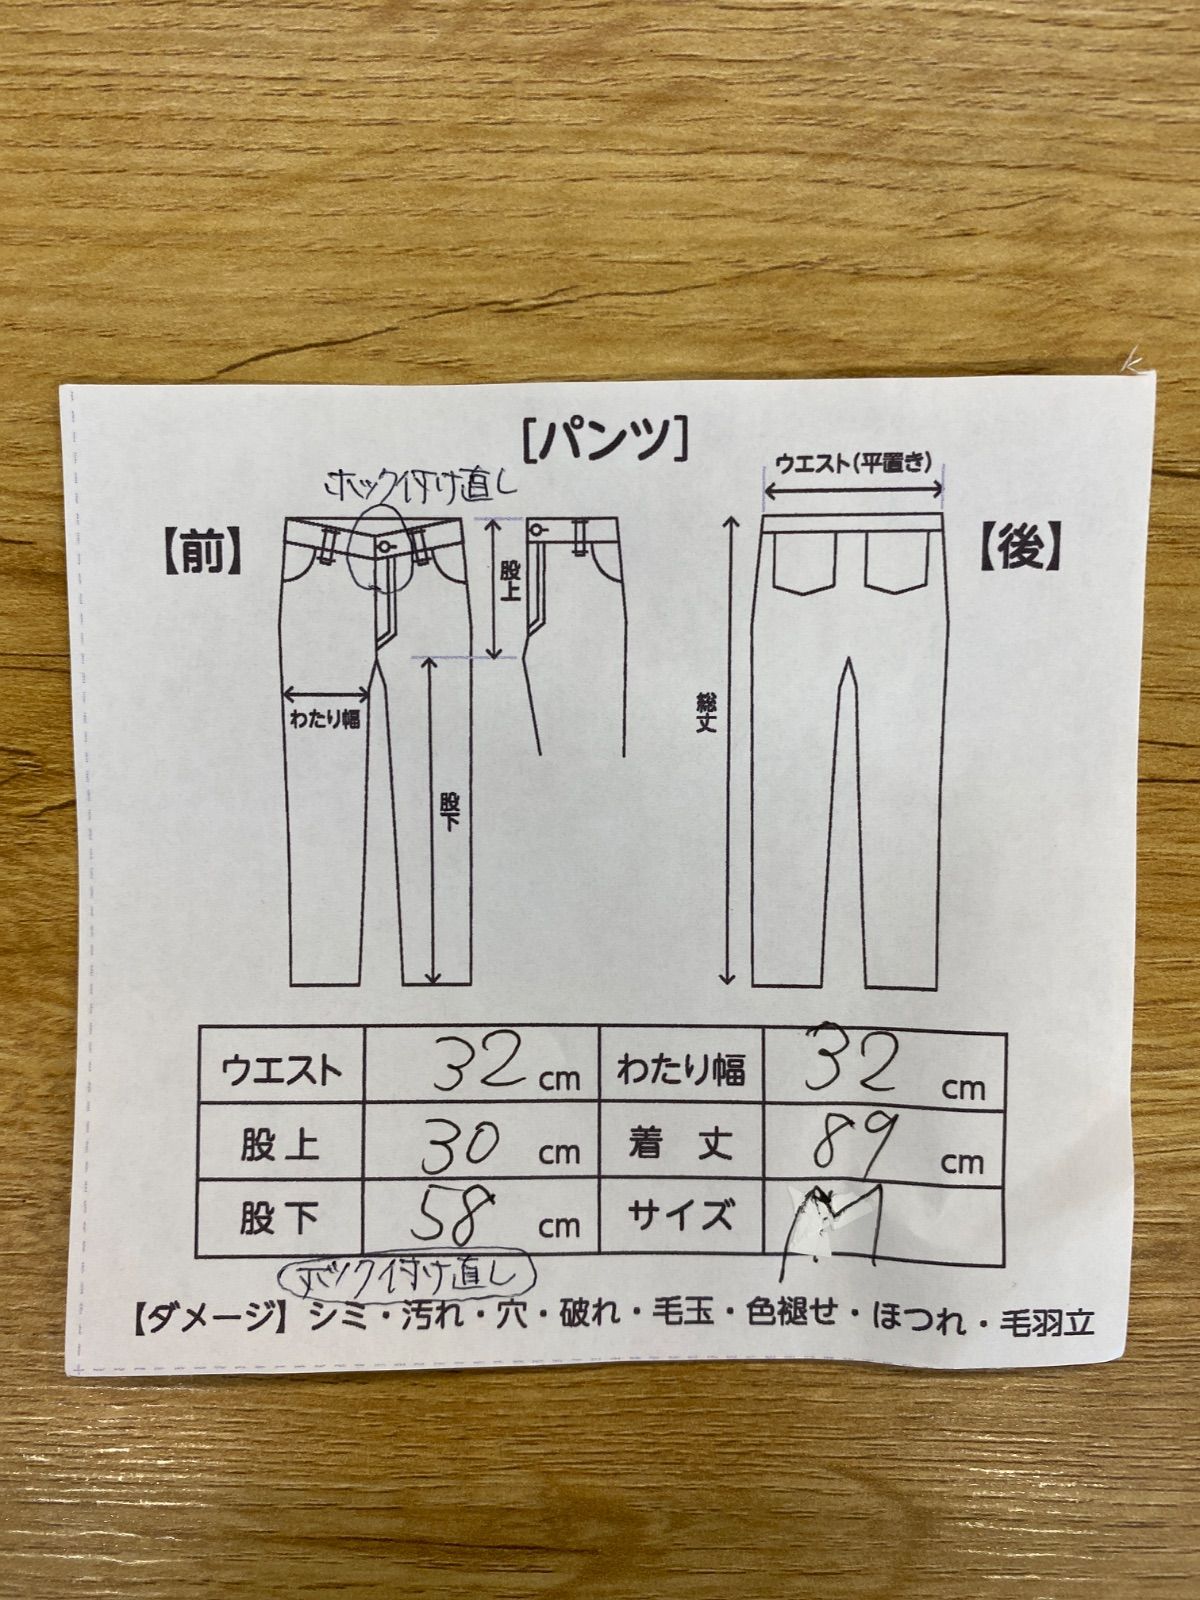 [パンツ]
ホック付け直し
ウエスト(平置き)
【前】
【後】
股上
わたり幅
股下
総丈
ウエスト 32 cm わたり幅 32 cm
股上 30 cm 着丈 89 cm
股下 58 cm サイズ M
ホック付け直し
【ダメージ】シミ・汚れ・穴・破れ・毛玉・色褪せ・ほつれ・毛羽立